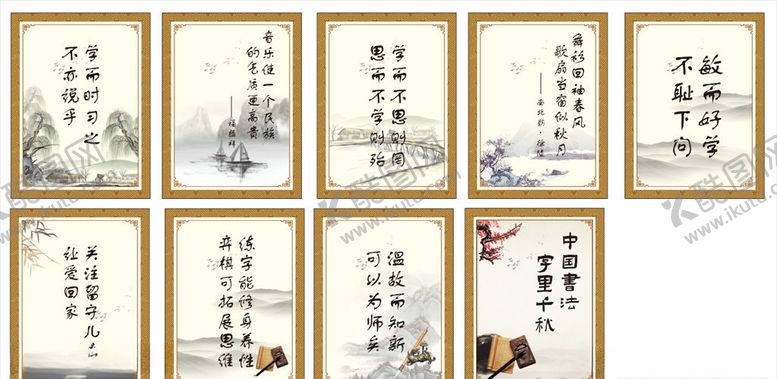 学而时习之
不亦说乎
音乐使一个民族
的气质更高贵
学而不思则罔
思而不学则殆
舞衫回袖春风
歌扇当窗似秋月
——南北朝·徐陵
敏而好学
不耻下问
关注留守儿
让爱回家
练字能修身养性
弈棋可拓展思维
温故而知新
可以为师矣
中国書法
字里千秋